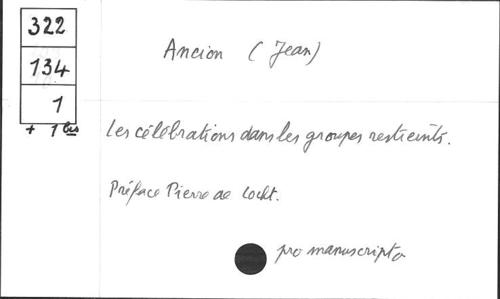 322
134
1
+ 1 bis
Ancion (Jean)
Les célébrations dans les groupes restreints.
Préface Pierre de Locht.
pro manuscripto